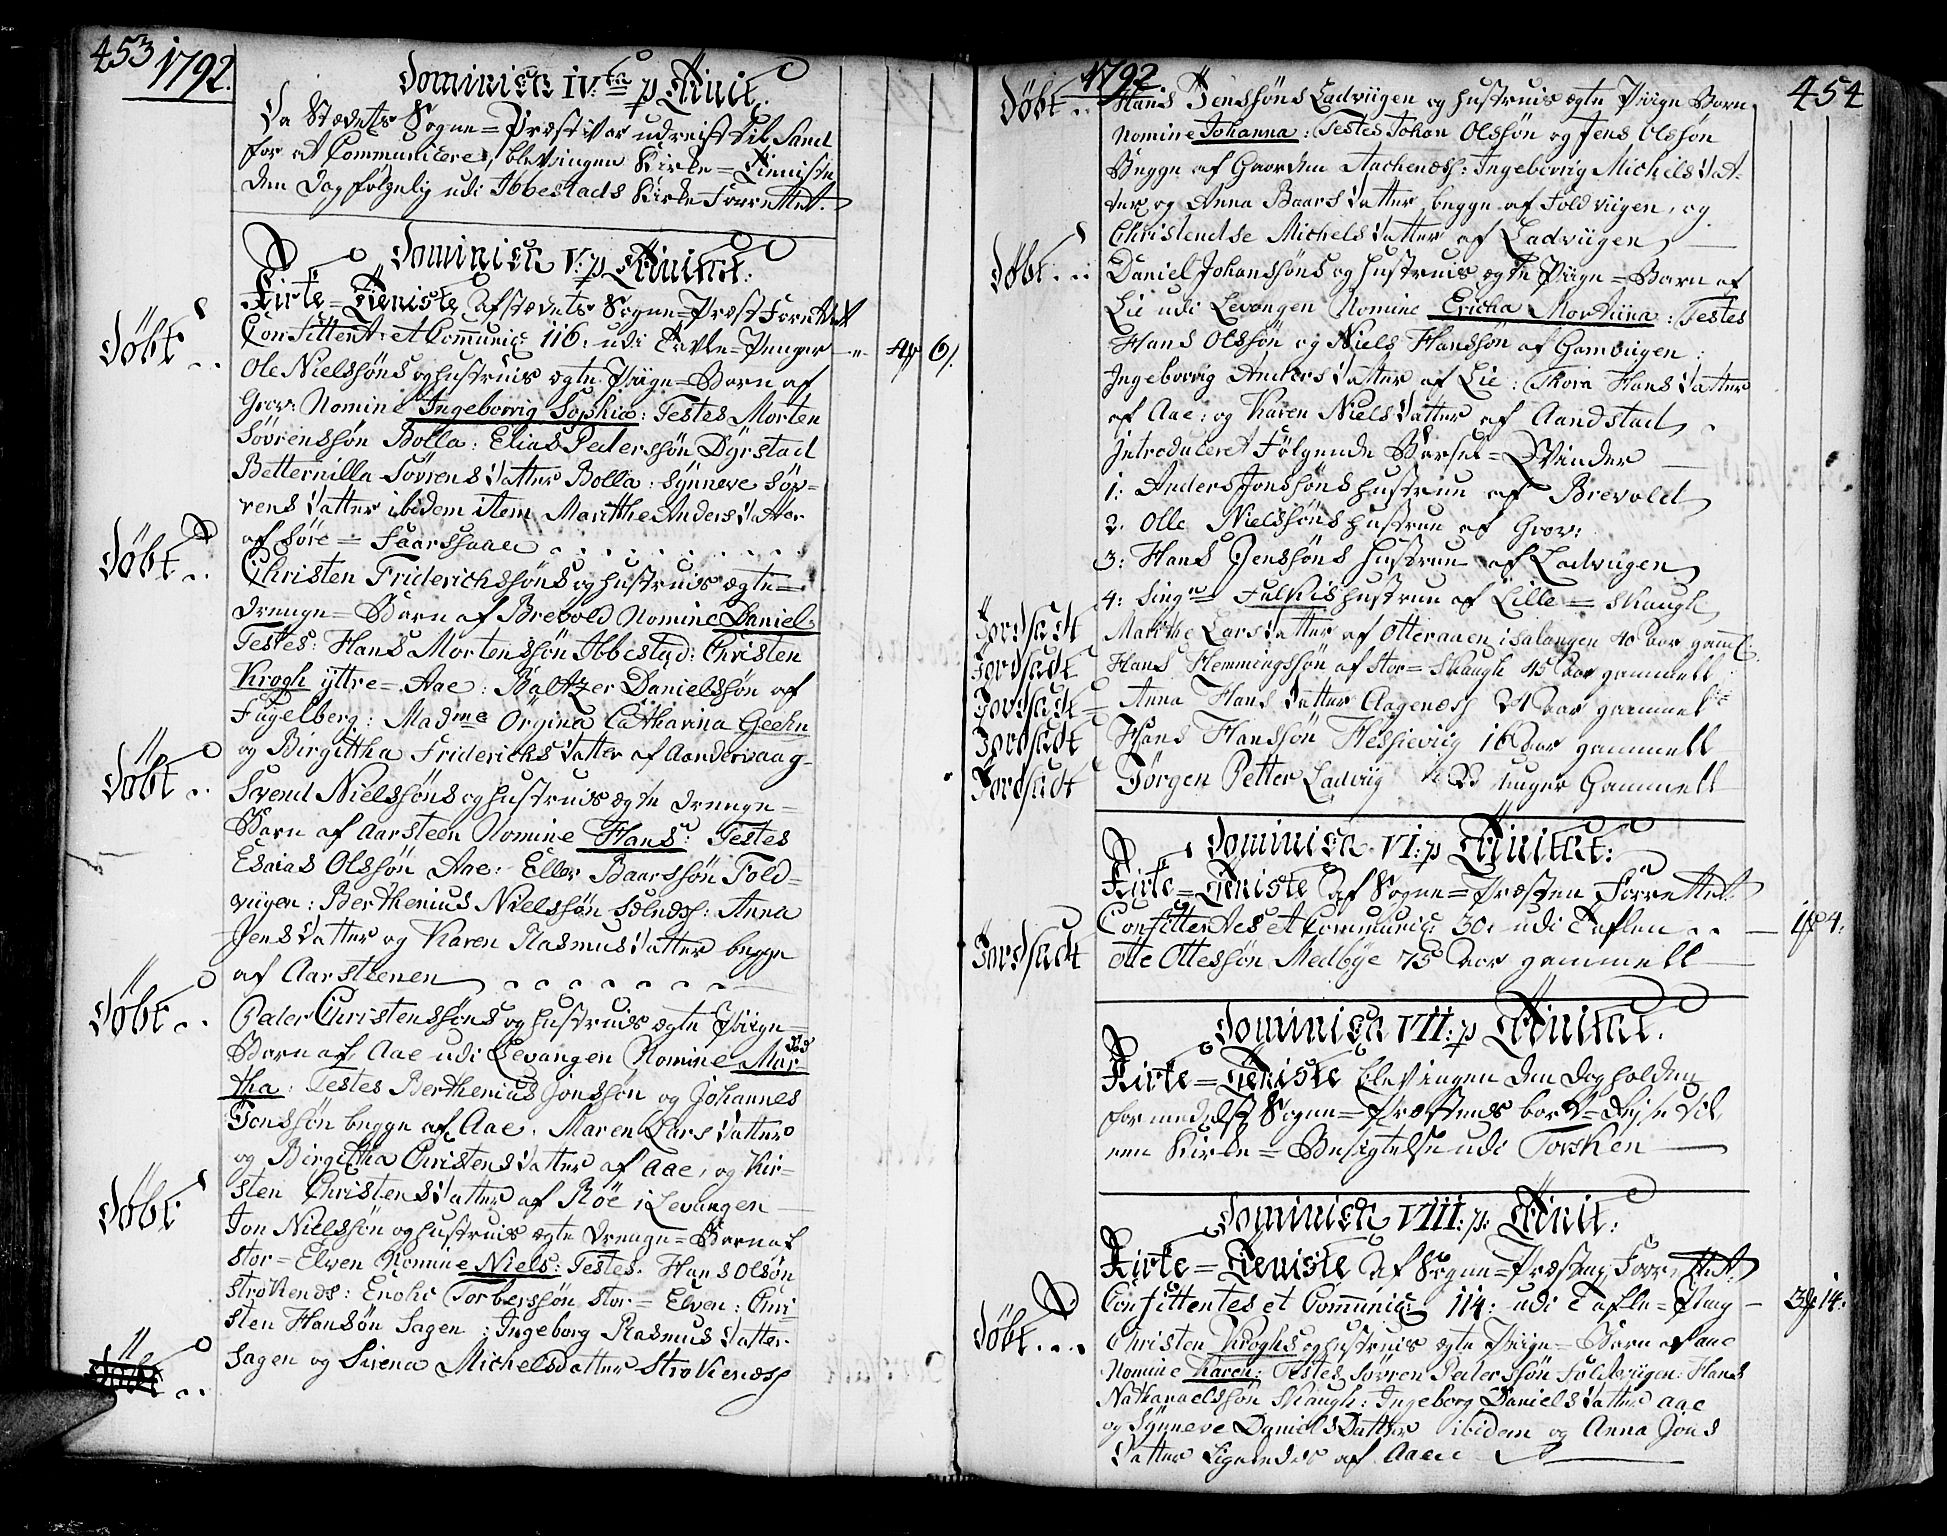 453 1792.
Dominica IV.ta p Trinit.
Da Stedets Sogne=Præst var udreist til Sand
for at Communicere, blev ingen Kirke=Tieniste
den Dag følgelig udi Ibbestads Kirke Forrettet.
Dominica V: p Trinitat:
Kirke=Tieniste af stedets Sogne=Præst Forrettet
Confitent: et Communic: 116: udi Tavle=Penger 4 6
Døbt Ole Nielssøns og hustrues ægte Piige=Barn af
Grov: Nomine Ingeborrig Sophia: Testes Morten
Sövrenssøn Bolla: Elias Pederssøn Dÿrstad
Betternilla Sövrens Datter Bolla: Synneve Söv=
rens Datter ibidem item Marithe Anders Datter
af Söre = Faarsaae
Døbt Christen Friderichssøns og hustrues ægte=
Drenge=Barn af Brevold Nomine Daniel:
Testes: Hans Mortenssøn Ibbestad: Christen
Krogh ÿttre=Aae: Baltzer Danielssøn af
Fugelberg: Madme Örgina Catharina Geehn
og Birgittha Friderichs Datter af Aandervaag
Døbt Svend Nielssøns og hustrues ægte Drenge=
Barn af Aarsteen Nomine Hans: Testes
Esaias Olssøn Aae: Eller Baarssøn Fold=
viigen: Berthenius Nielssøn : Anna
Jens Datter og Karen Rasmus Datter begge
af Aarsteenen
Døbt Peder Christenssøns og hustrues ægte Piige
Barn af Aae udi Levangen Nomine Mar=
tha: Testes Berthenius Jonssøn og Johannes
Jonssøn begge af Aae. Maren Lars Datter
og Birgittha Christens Datter af Aae, og Kir=
sten Christens Datter af Röe i Levangen
Døbt Jon Nielssøn og hustrues ægte Drenge=Barn af
stor=Elven Nomine Niels: Testes. Hans Olsøn
strokends: Enok Torberssøn stor=Elven: Chri=
sten Hansøn Sagen: Ingeborg Rasmus Datter
Sagen og Sirena Michelsdatter Strokenæs
1792 454
Døbt Hans Jenssøns Ladviigen og hustrues ægte Piige Barn
Nomine Johanna: Testes Johan Olssøn og Jens Olssøn
Begge af Gaarden Aachenæs: Ingeborrig Michels Dat=
ter og Anna Baars Datter begge af Foldviigen, og
Christendse Michels Datter af Ladviigen
Døbt Daniel Johanssøns og hustrues ægte Piige=Barn af
Lie udi Levangen Nomine Ericha Martina: Testes
Hans Olssøn og Niels Hanssøn af Gamviigen:
Ingeborrig Anders Datter af Lie: Thora Hans Datter
af Aae: og Karen Niels Datter af Aandstad
Introduceret Følgende Barsel=Qvinder
1: Anders Jonssøns hustrue af Brevold
2. Olle Nielssøns hustrue af Grov:
3: Hans Jenssøns hustrue af Ladviigen
4: Singr Falkis hustrue af Lille=Skaugh
Jordfæst Marthe Lars Datter af Otteraaen i Salangen 40 aar gaml.
Jordfæst Hans Flemmingssøn af stor=Skaugh 45 aar gammell
Jordfæst Anna Hans Datter Aagenæs 24 aar gammel
Jordfæst Hans Hanssøn Hessieviig 16 aar gammell
Jordfæst Jørgen Petter Ladviig uuger Gammell
Dominica VI: p Trinitat:
Kirke=Tieniste af Sogne=Præsten Forrettet:
Confitentes et Communic: 30: udi Taflen 1 4:
Jordfæst Otte Ottessøn Medbÿe 75 aar gammell
Dominica VII: p Trinitat.
Kirke=Tieniste blev ingen den Dag holden
formedelst Sogne=Præstens bort=Rejse til
een Kirke=Besigtelse udi Torsken
Dominica VIII: p: Trinit:
Kirke=Tieniste af Sogne=Præsten Forrettet
Confittentes et Communic: 114: udi Tafle=Peng 3 14:
Døbt Christen Kroghs og hustrues ægte Piige=Barn af aae
Nomine Karen: Testes Sövren Pederssøn Foldviigen: Hans
Nathanaelssøn Skaugh: Ingeborg Daniels Datter aae
og Sÿnneve Daniels Datter ibidem og Anna Jons
Datter Ligeledes af Aaee